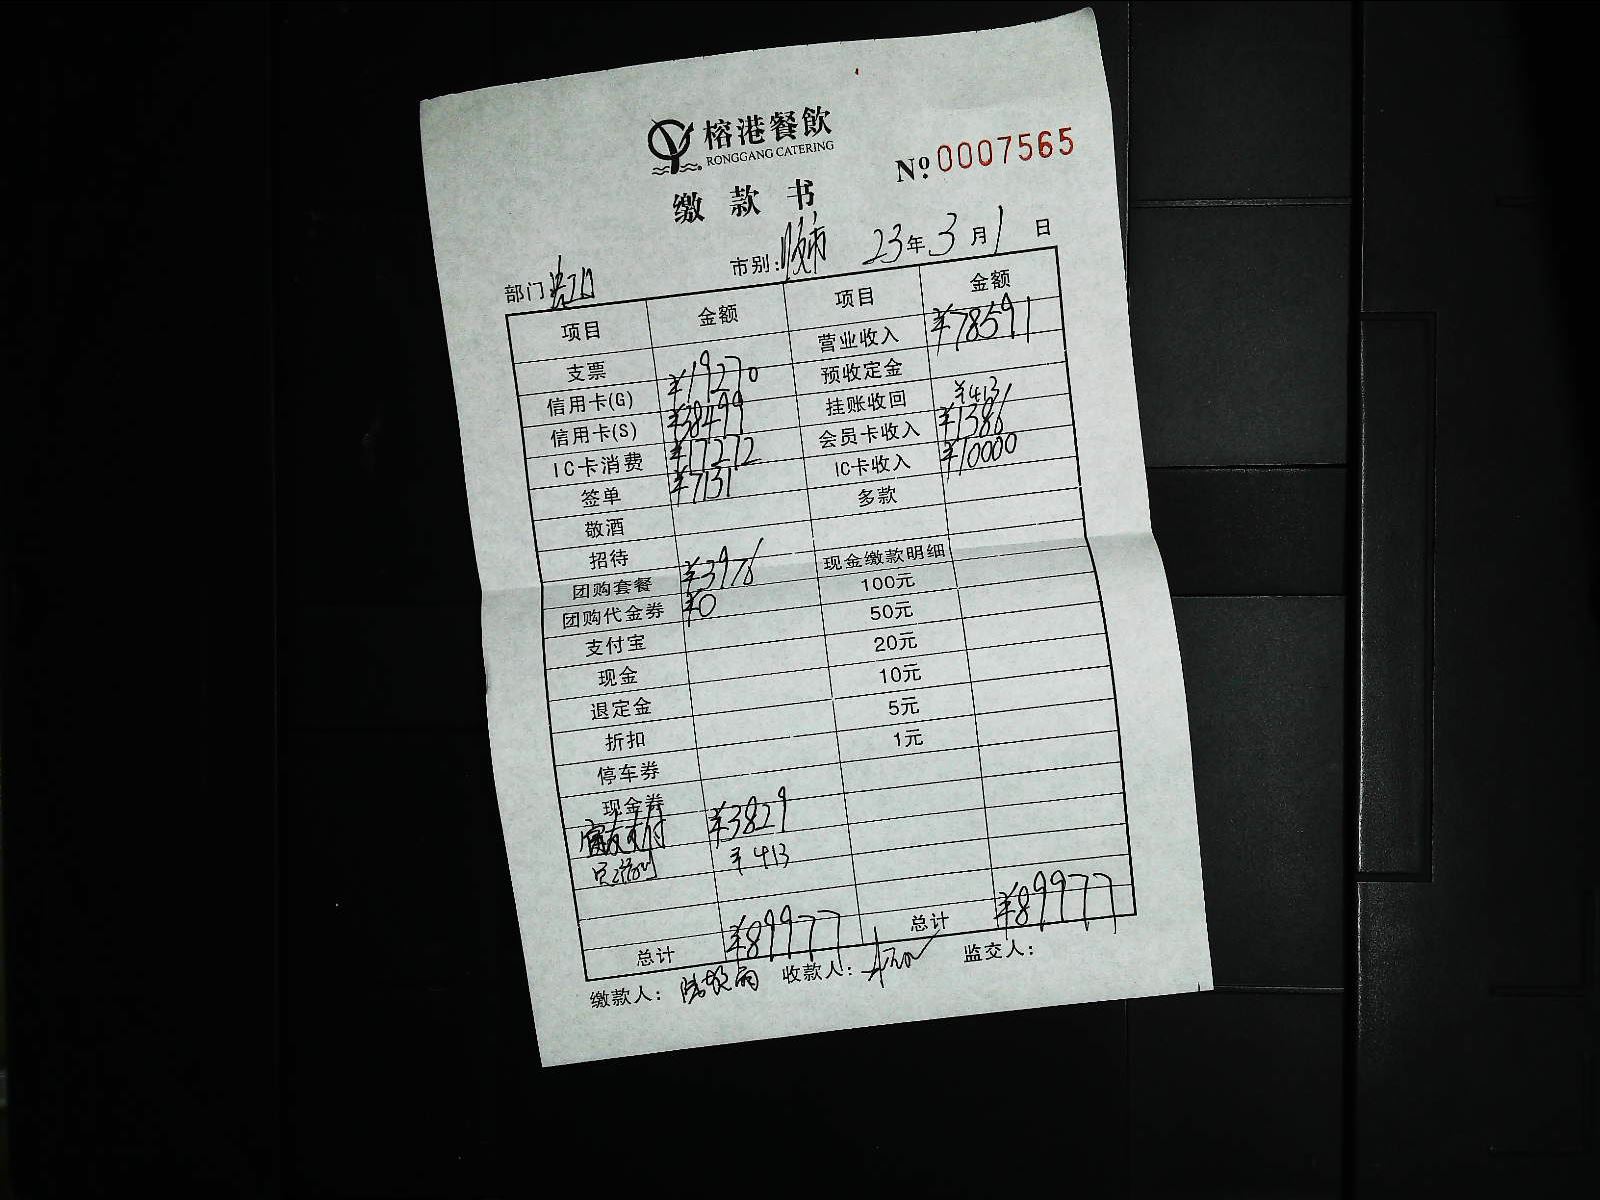 榕港餐飲
RONGGANG CATERING
№ 0007565
缴款书
部门 市别: 晚市 23年3月1日
项目 金额 项目 金额
支票 营业收入 ¥78591
信用卡(G) ¥19270 预收定金
信用卡(S) ¥38499 挂账收回 ¥413
IC卡消费 ¥17272 会员卡收入 ¥1386
签单 ¥7131 IC卡收入 ¥10000
敬酒 多款
招待
团购套餐 ¥3976 现金缴款明细
团购代金券 ¥0 100元
支付宝 50元
现金 20元
退定金 10元
折扣 5元
停车券 1元
现金券
支付 ¥3829
¥413
总计 ¥89977 总计 ¥89977
缴款人: 收款人: 监交人: